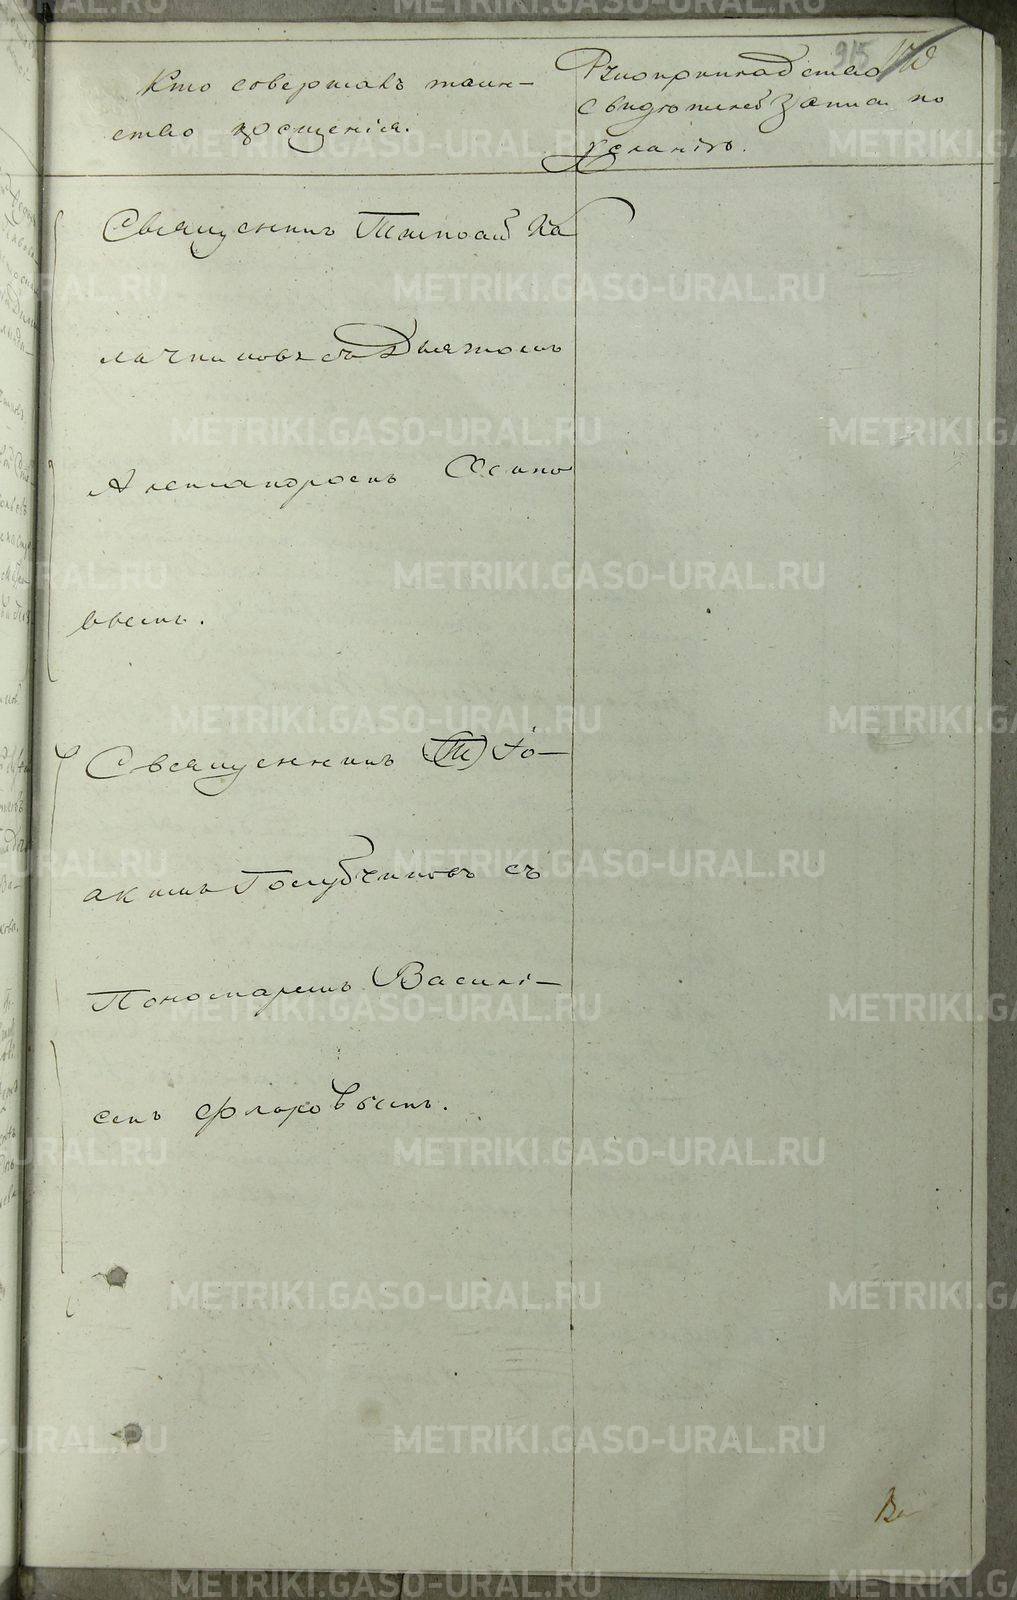 915
Кто совершалъ таин-
ство крещенія.
Рукоприкладство
свидѣтелей записи по
желанію.
Священникъ Тимофей Ка
лачниковъ съ Дьячкомъ
Александромъ Осипо
вымъ.
Священникъ Іо-
акимъ Голубчиковъ съ
Пономаремъ Василі-
емъ Флоровымъ.
METRIKI.GASO-URAL.RU